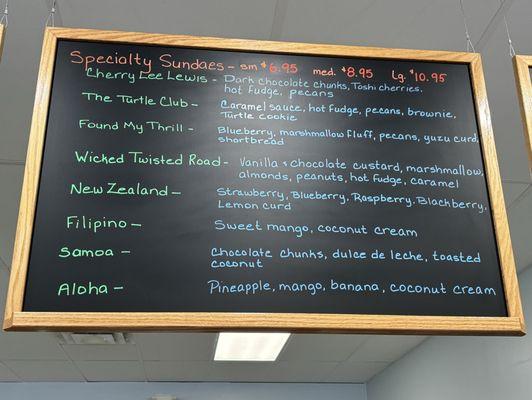 Specialty Sundaes - sm $6.95 med. $8.95 Lg. $10.95
Cherry Lee Lewis - Dark chocolate chunks, Toshi cherries,
hot fudge, pecans
The Turtle Club - Caramel sauce, hot fudge, pecans, brownie,
Turtle cookie
Found My Thrill - Blueberry, marshmallow fluff, pecans, yuzu curd,
shortbread
Wicked Twisted Road - Vanilla + chocolate custard, marshmallow,
almonds, peanuts, hot fudge, caramel
New Zealand - Strawberry, Blueberry, Raspberry, Blackberry,
Lemon curd
Filipino - Sweet mango, coconut cream
Samoa - Chocolate chunks, dulce de leche, toasted
coconut
Aloha - Pineapple, mango, banana, coconut cream